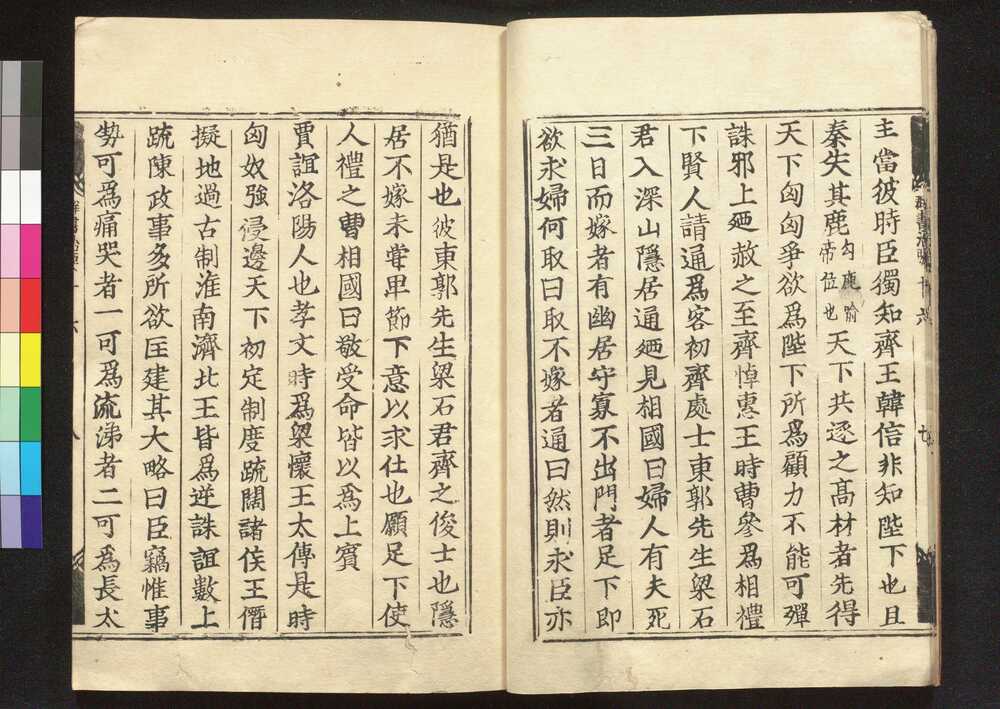 主當彼時臣獨知齊王韓信非知陛下也且
秦失其鹿
鹿喻
帝位也
天下共逐之髙材者先得
天下匈匈爭欲爲陛下所爲顧力不能可殫
誅邪上廼赦之至齊悼惠王時曹參爲相禮
下賢人請通爲客初齊處士東郭先生梁石
君入深山隱居通廼見相國曰婦人有夫死
三日而嫁者有幽居守寡不出門者足下即
欲求婦何取曰取不嫁者通曰然則求臣亦
猶是也彼東郭先生梁石君齊之俊士也隱
居不嫁未甞卑節下意以求仕也願足下使
人禮之曹相國曰敬受命皆以爲上賓
賈誼洛陽人也孝文時爲梁懷王太傅是時
匈奴強侵邊天下初定制度疏闊諸侯王僭
擬地過古制淮南濟北王皆爲逆誅誼數上
疏陳政事多所欲匡建其大略曰臣竊惟事
勢可爲痛哭者一可爲流涕者二可爲長太